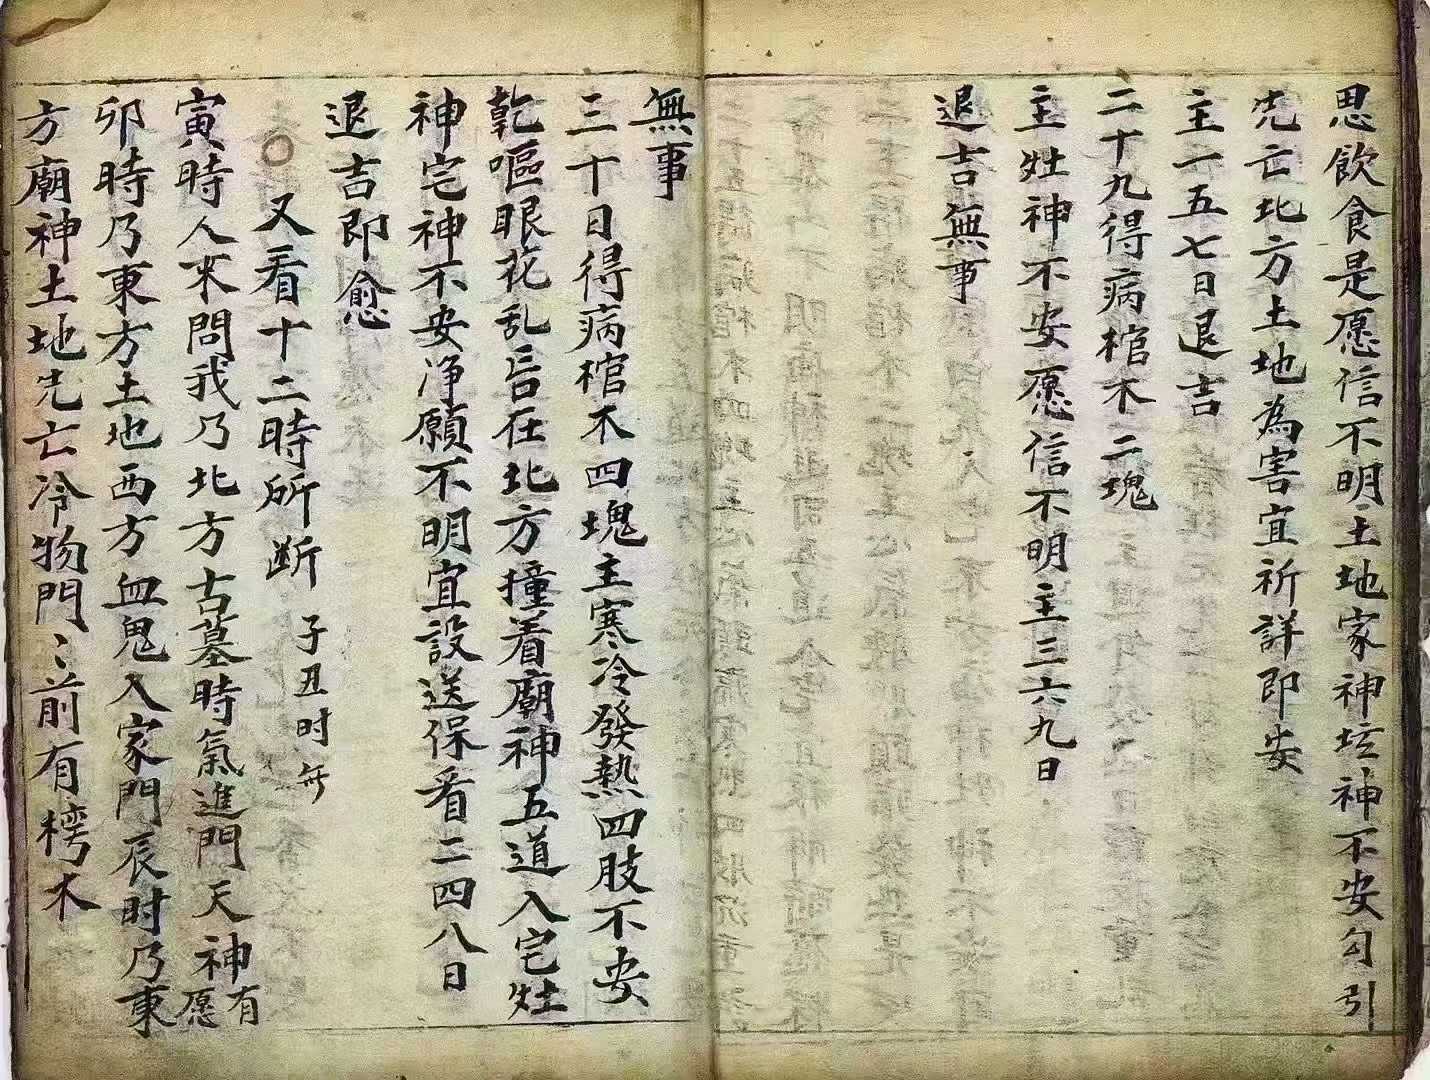 思飲食是愿信不明土地家神坛神不安勾引
先亡北方土地為害宜祈詳即安
主一五七日退吉
二十九得病棺木二塊
主灶神不安愿信不明主三六九日
退吉無事
無事
三十日得病棺木四塊主寒冷發熱四肢不安
乾嘔眼花乱言在北方撞着廟神五道入宅灶
神宅神不安净願不明宜設送保看二四八日
退吉即愈
又看十二時所断 子丑时無
寅時人來問我乃北方古墓時氣進門天神有愿
卯時乃東方土地西方血鬼入家門辰时乃東
方廟神土地先亡冷物門〻前有樗木